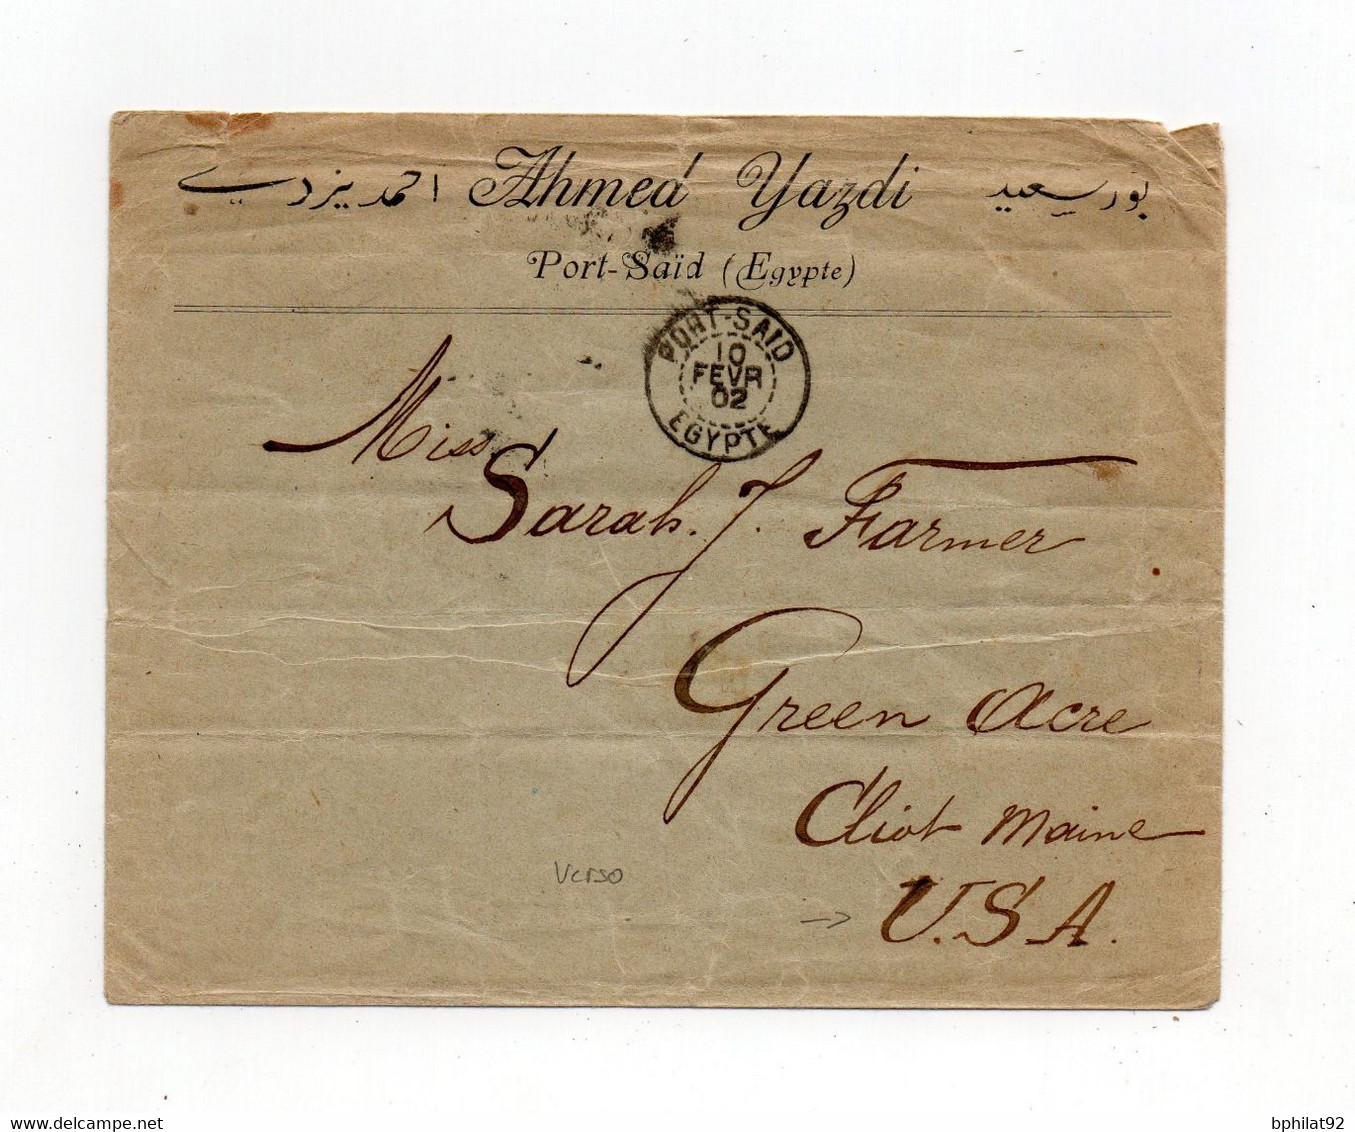 احمد يزدي Ahmed Yazdi بور سعيد
Port-Saïd (Egypte)
PORT-SAID
10
FEVR
02
EGYPTE
Miss.
Sarah. J. Farmer
Green Acre
Eliot Maine
U.S.A.
Verso
www.delcampe.net
bphilat92